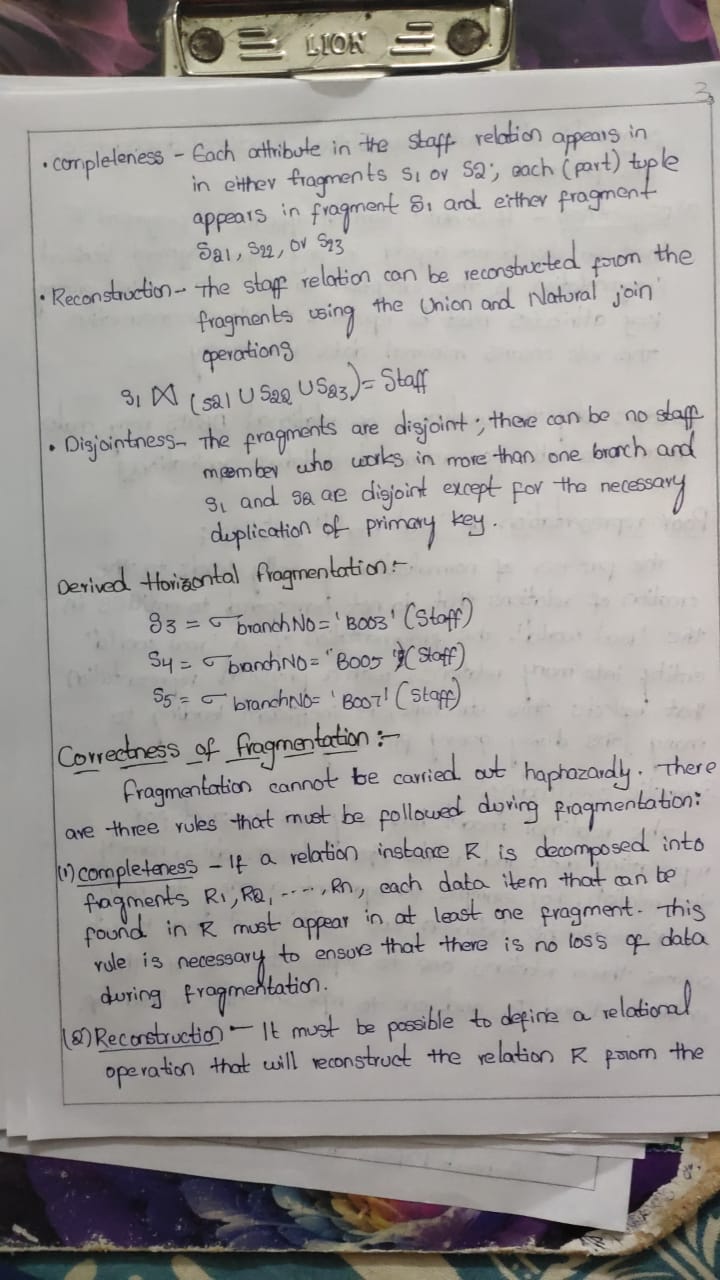 LION
3
• completeness - Each attribute in the staff relation appears in
in either fragments S1 or S2; each (part) tuple
appears in fragment S1 and either fragment
S21, S22, or S23
• Reconstruction - the staff relation can be reconstructed from the
fragments using the Union and Natural join
operations
S1 ⋈ (S21 ∪ S22 ∪ S23) = Staff
• Disjointness - the fragments are disjoint; there can be no staff
meember who works in more than one branch and
S1 and S2 are disjoint except for the necessary
duplication of primary key.
Derived Horizontal fragmentation:-
S3 = σ branchNo = 'B003' (Staff)
S4 = σ branchNo = "B005" (Staff)
S5 = σ branchNo = 'B007' (Staff)
Correctness of fragmentation :-
fragmentation cannot be carried out haphazardly. There
are three rules that must be followed during fragmentation:
(1) completeness - If a relation instance R is decomposed into
fragments R1, R2, ----, Rn, each data item that can be
found in R must appear in at least one fragment. This
rule is necessary to ensure that there is no loss of data
during fragmentation.
(2) Reconstruction - It must be possible to define a relational
operation that will reconstruct the relation R from the